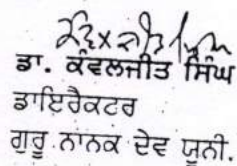 ਡਾ. ਕੰਵਲਜੀਤ ਸਿੰਘ
ਡਾਇਰੈਕਟਰ
ਗੁਰੂ ਨਾਨਕ ਦੇਵ ਯੂਨੀ.